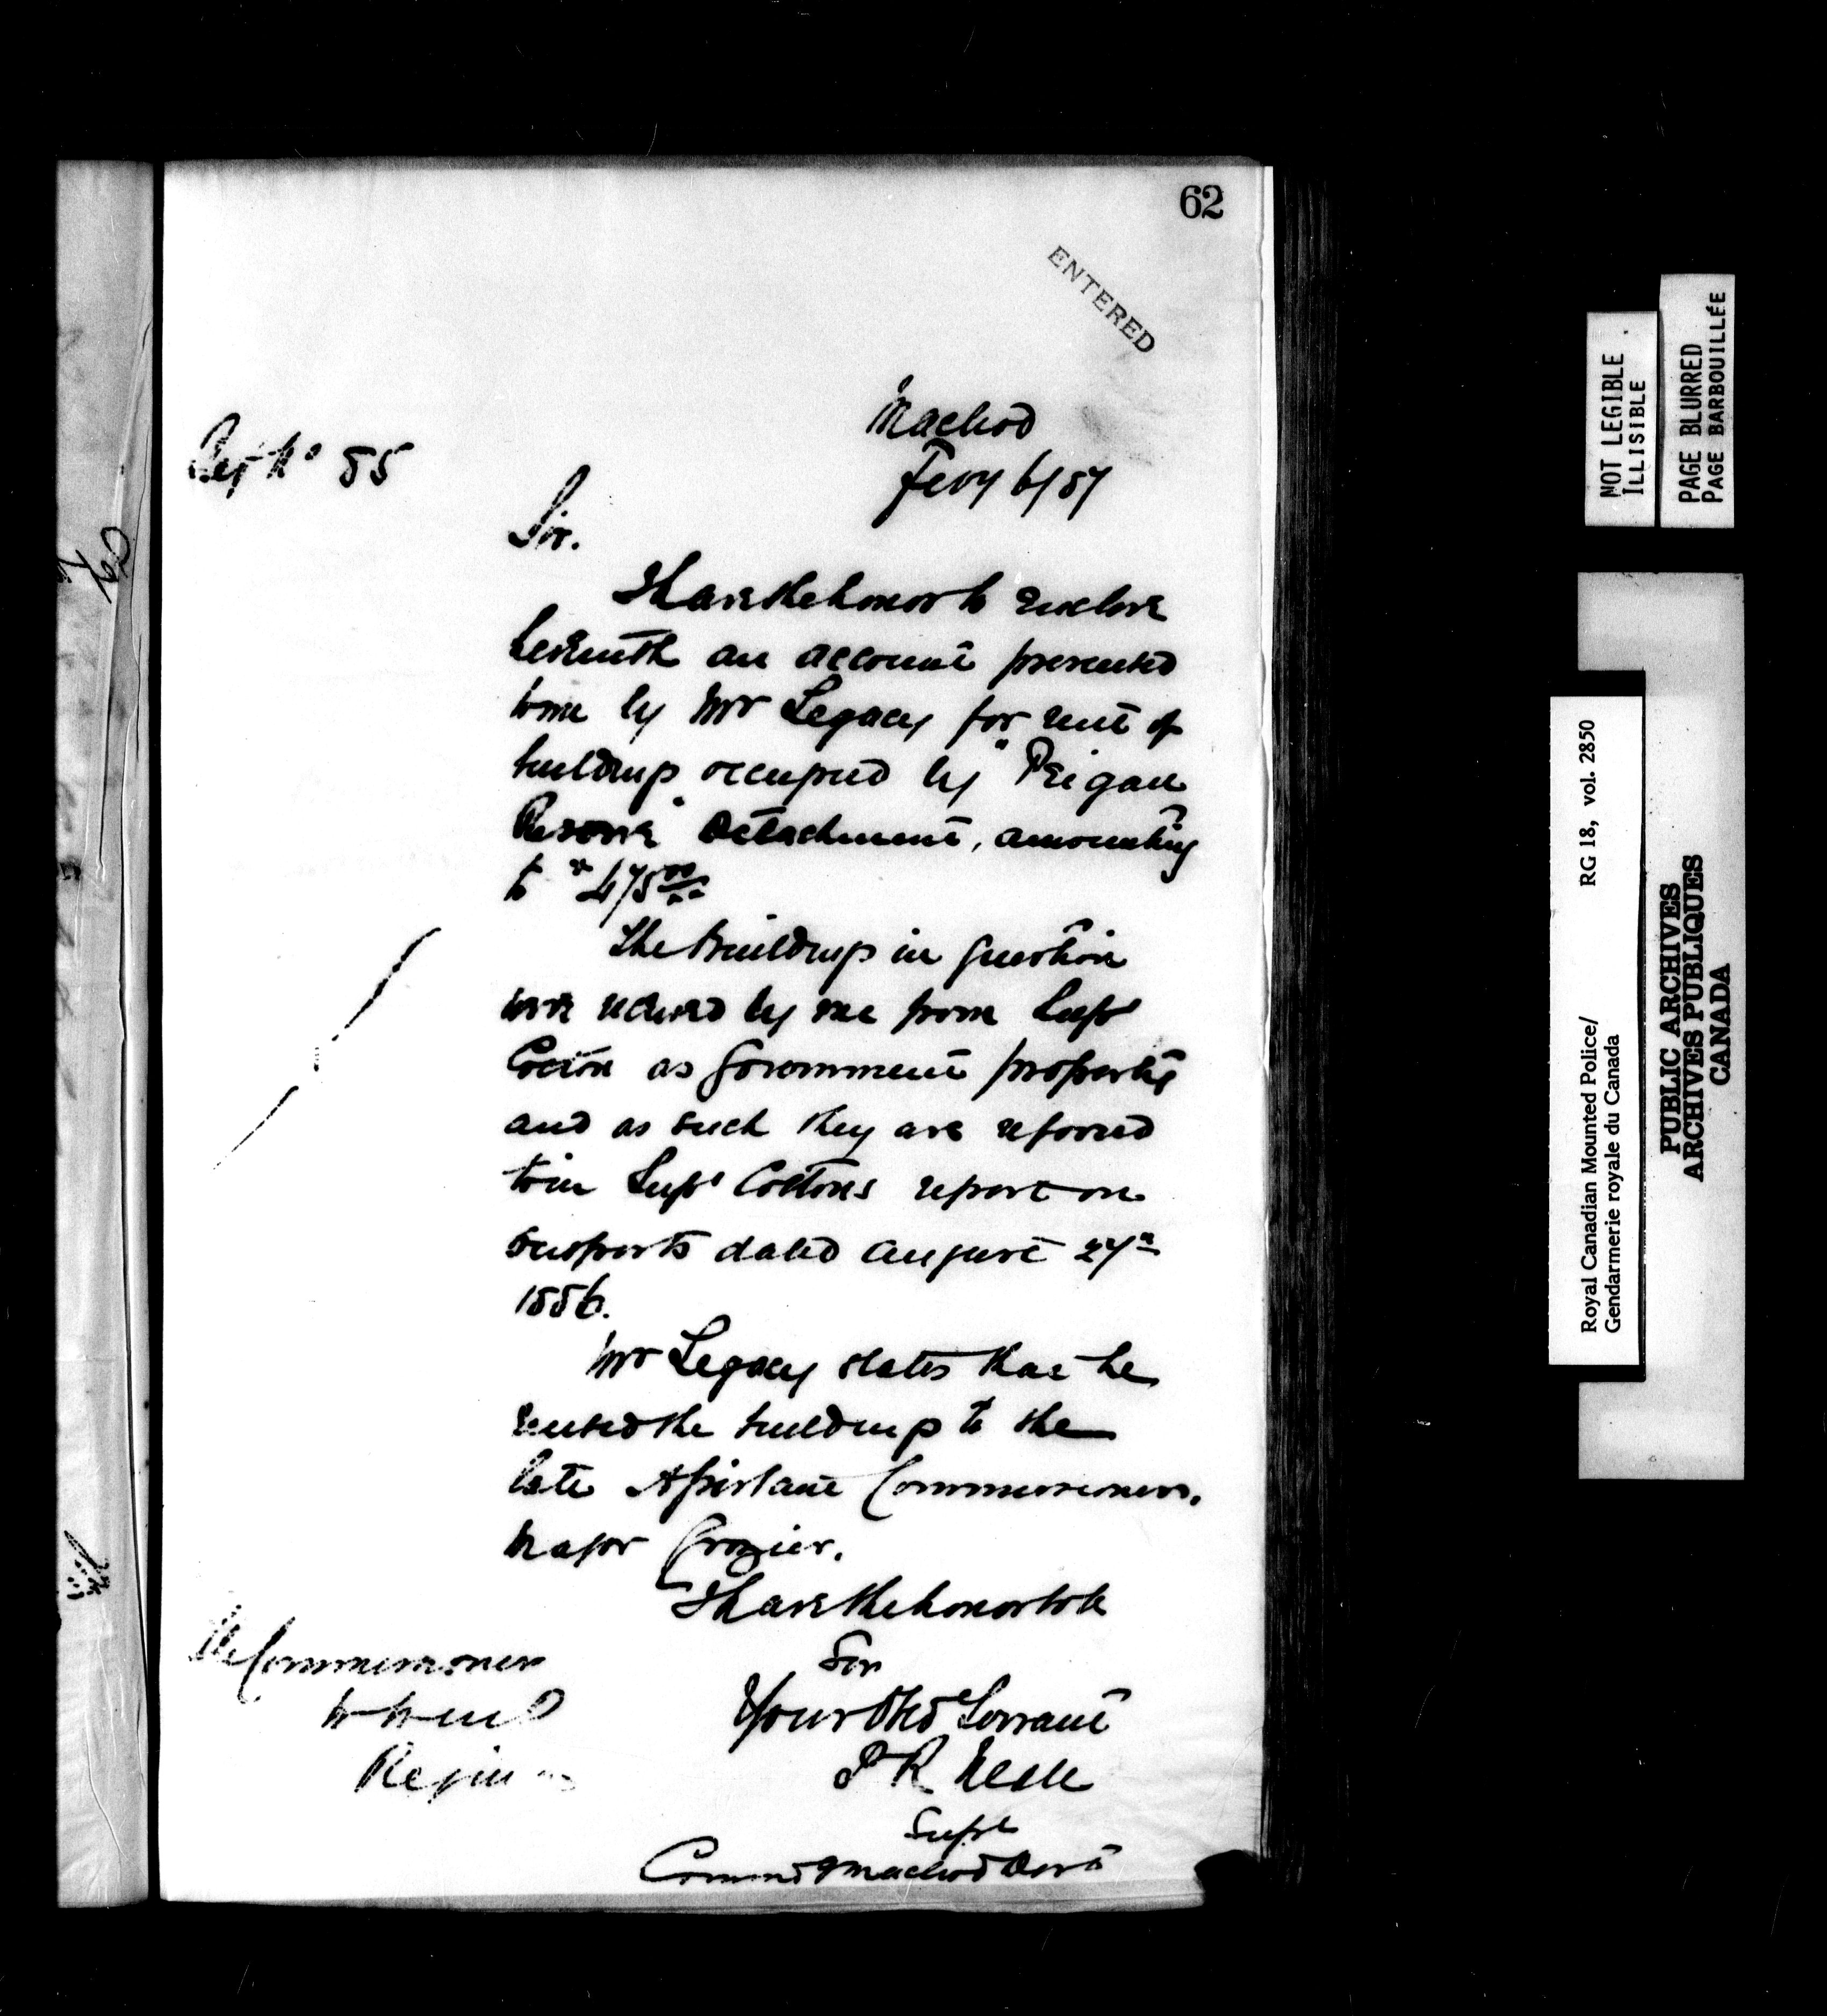 62
ENTERED
Macleod
Feby 6/87
No 55
Sir.
I have the honor to enclose
herewith an account presented
to me by Mr Legacy for rent of
buildings occupied by "Peigan
Reserve" Detachment, amounting
to $475.00
The buildings in question
were received by me from Supt
Cotton as Government property
and as such they are referred
to in Supt Cottons report on
outposts dated August 27th
1886.
Mr Legacy states that he
rented the buildings to the
late Assistant Commissioner,
Major Crozier.
I have the honor to be
Sir
Your Obed Servant
P R Neale
Supt
Commdg Macleod Dist
The Commissioner
Regina
NOT LEGIBLE
ILLISIBLE
PAGE BLURRED
PAGE BARBOUILLÉE
Royal Canadian Mounted Police/ RG 18, vol. 2850
Gendarmerie royale du Canada
PUBLIC ARCHIVES
ARCHIVES PUBLIQUES
CANADA